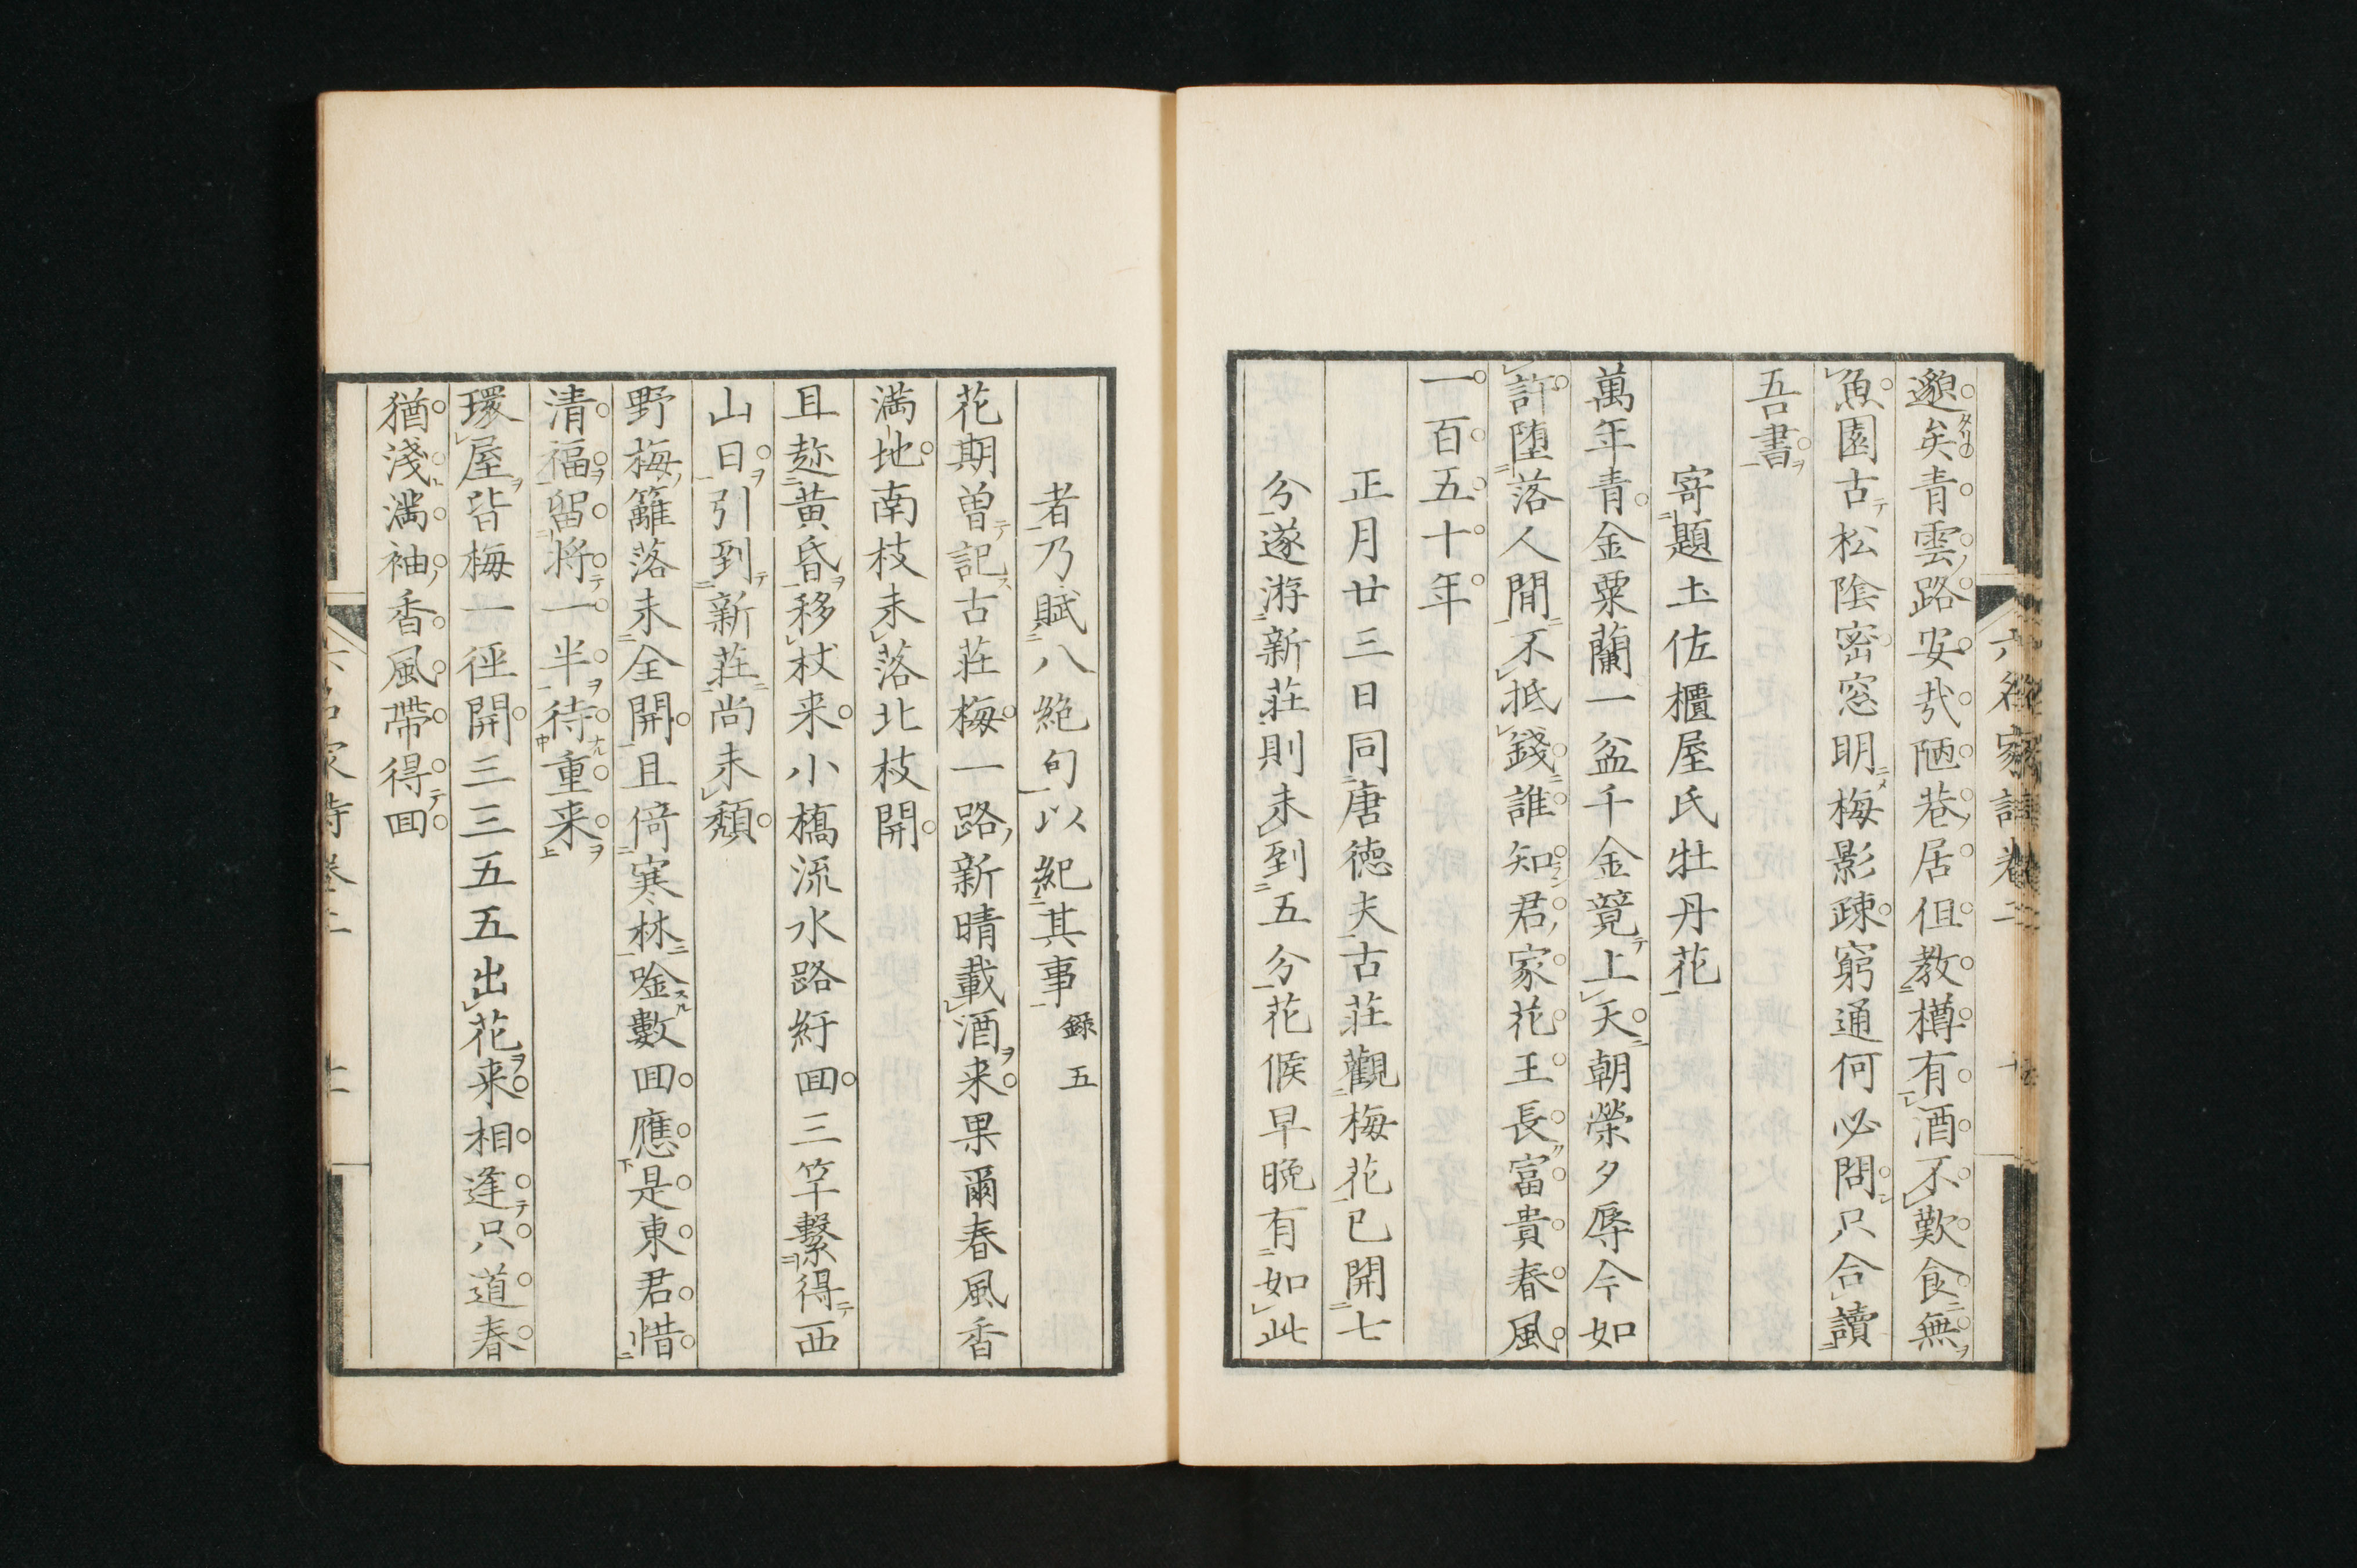 邈矣青雲路安哉陋巷居但教樽有酒不歎食無
魚園古松陰密窓明梅影疎窮通何必問只合讀
吾書
寄題土佐櫃屋氏牡丹花
萬年青金粟蘭一盆千金競上天朝榮夕辱今如
許墮落人間不抵錢誰知君家花王長富貴春風
一百五十年
正月廿三日同唐徳夫古莊觀梅花已開七
分遂游新莊則未到五分花候早晩有如此
者乃賦八絶句以紀其事 錄五
花期曽記古莊梅一路新晴載酒来果爾春風香
満地南枝未落北枝開
且趂黄昏移杖来小橋流水路紆囬三竿繫得西
山日引到新莊尚未頽
野梅籬落未全開且倚寒林唫數囬應是東君惜
清福留将一半待重来
環屋皆梅一徑開三三五五出花来相逢只道春
猶淺満袖香風帶得囬
六名家詩卷二